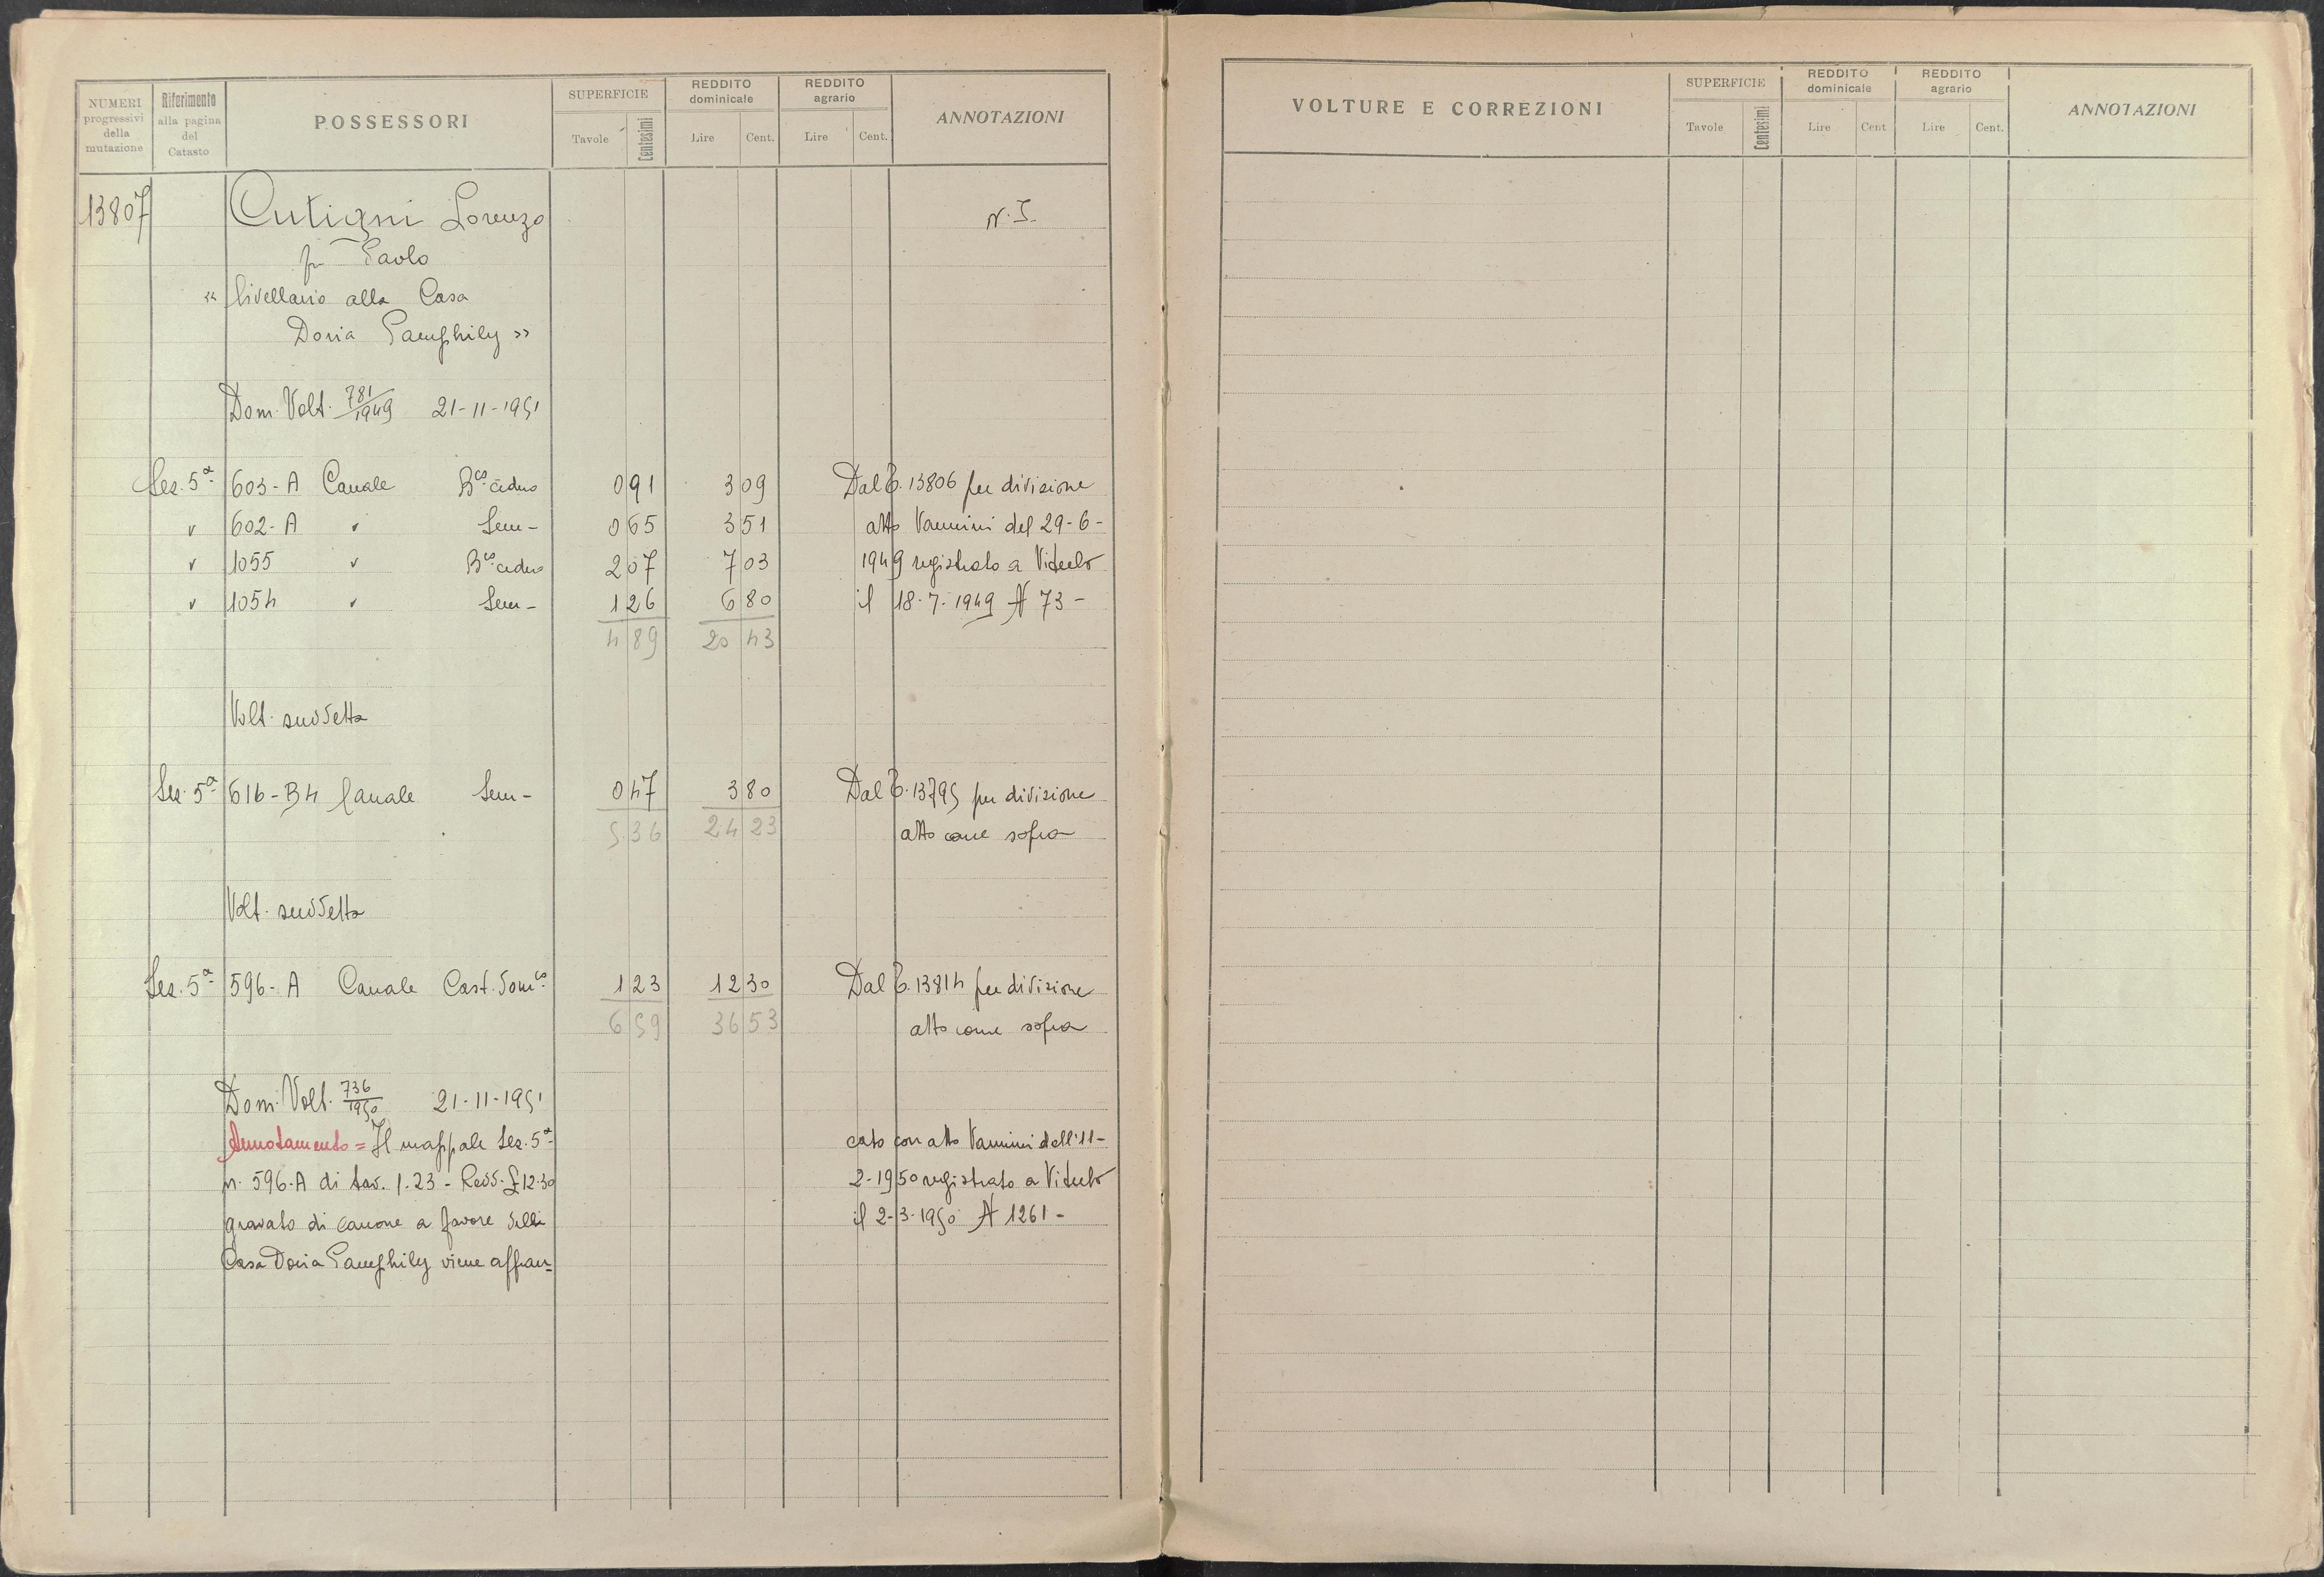 NUMERI progressivi della mutazione | Riferimento alla pagina del Catasto | POSSESSORI | SUPERFICIE Tavole Centesimi | REDDITO dominicale Lire Cent. | REDDITO agrario Lire Cent. | ANNOTAZIONI
13807 Cutigni Lorenzo N.I.
fu Paolo
" livellario alla Casa
Doria Pamphily "
Dom. Volt. 781/1949 21-11-1951
Sez. 5ª 603-A Canale B.co ceduo 0 91 3 09 Dal P. 13806 per divisione
" 602-A " Sem- 0 65 3 51 atto Vannini del 29-6-
" 1055 " B.co ceduo 2 07 7 03 1949 registrato a Viterbo
" 1054 " Sem- 1 26 6 80 il 18-7-1949 N 73-
4 89 20 43
Volt. suddetta
Sez. 5ª 616-B4 Canale Sem- 0 47 3 80 Dal P. 13795 per divisione
5 36 24 23 atto come sopra
Volt. suddetta
Sez. 5ª 596-A Canale Cast. dom.co 1 23 12 30 Dal P. 13814 per divisione
6 59 36 53 atto come sopra
Dom. Volt. 736/1950 21-11-1951
Annotamento = Il mappale Sez. 5ª cato con atto Vannini dell'11-
n. 596-A di tav. 1.23 - Redd. £ 12.30 2-1950 registrato a Viterbo
gravato di canone a favore della il 2-3-1950 N 1261-
Casa Doria Pamphily viene affran=
VOLTURE E CORREZIONI | SUPERFICIE Tavole Centesimi | REDDITO dominicale Lire Cent | REDDITO agrario Lire Cent. | ANNOTAZIONI